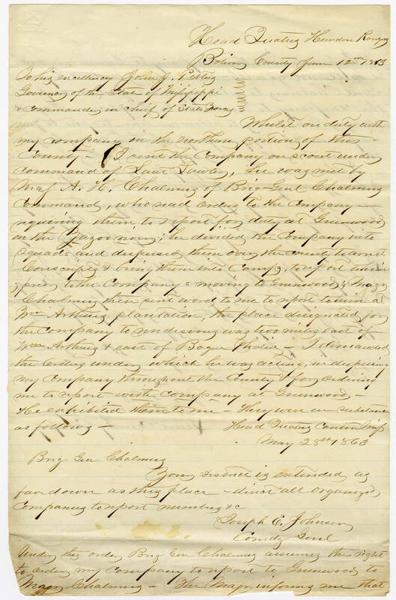 Head Quarters Herndon Rangers
Bolivar County June 12th 1863
To his excellency John J. Pettus
Governor of the State of Mississippi
& Commander in chief of State Forces
Whilst on duty with
my company in the northern portion of this
County - I sent the Company on scout under
command of Lieut he was met by
Maj A. H. Chalmers of Brig Genl Chalmers
Command, who read orders to the Company -
requiring them to report for duty at Greenwood
on the Yazoo river; he divided the Company into
squads and dispersed them over the County to arrest
Conscripts & bring them into Camp, to report
to the Company & moving to Greenwood; Maj
Chalmers then sent word to me to report to him at
Wm Arthurs plantation, the place designated for
the Company to rendezvous was two miles east of
Wm Arthurs & east of Bogue Phalia - I demanded
the orders under which he was acting, in dispersing
my Company throughout the County & for ordering
me to report with company at Greenwood -
He exhibited them to me They were in substance
as follows - Head Quarters Canton Miss
May 28th 1863
Brig Gen Chalmers
Your district is extended as
far down as this place - direct all organized
Companies to report numbers &c
Joseph E. Johnson
Comdg Genl
Under this order Brig Gen Chalmers assumes the right
to order my Company to report to Greenwood to
Major Chalmers - The Major informs me that